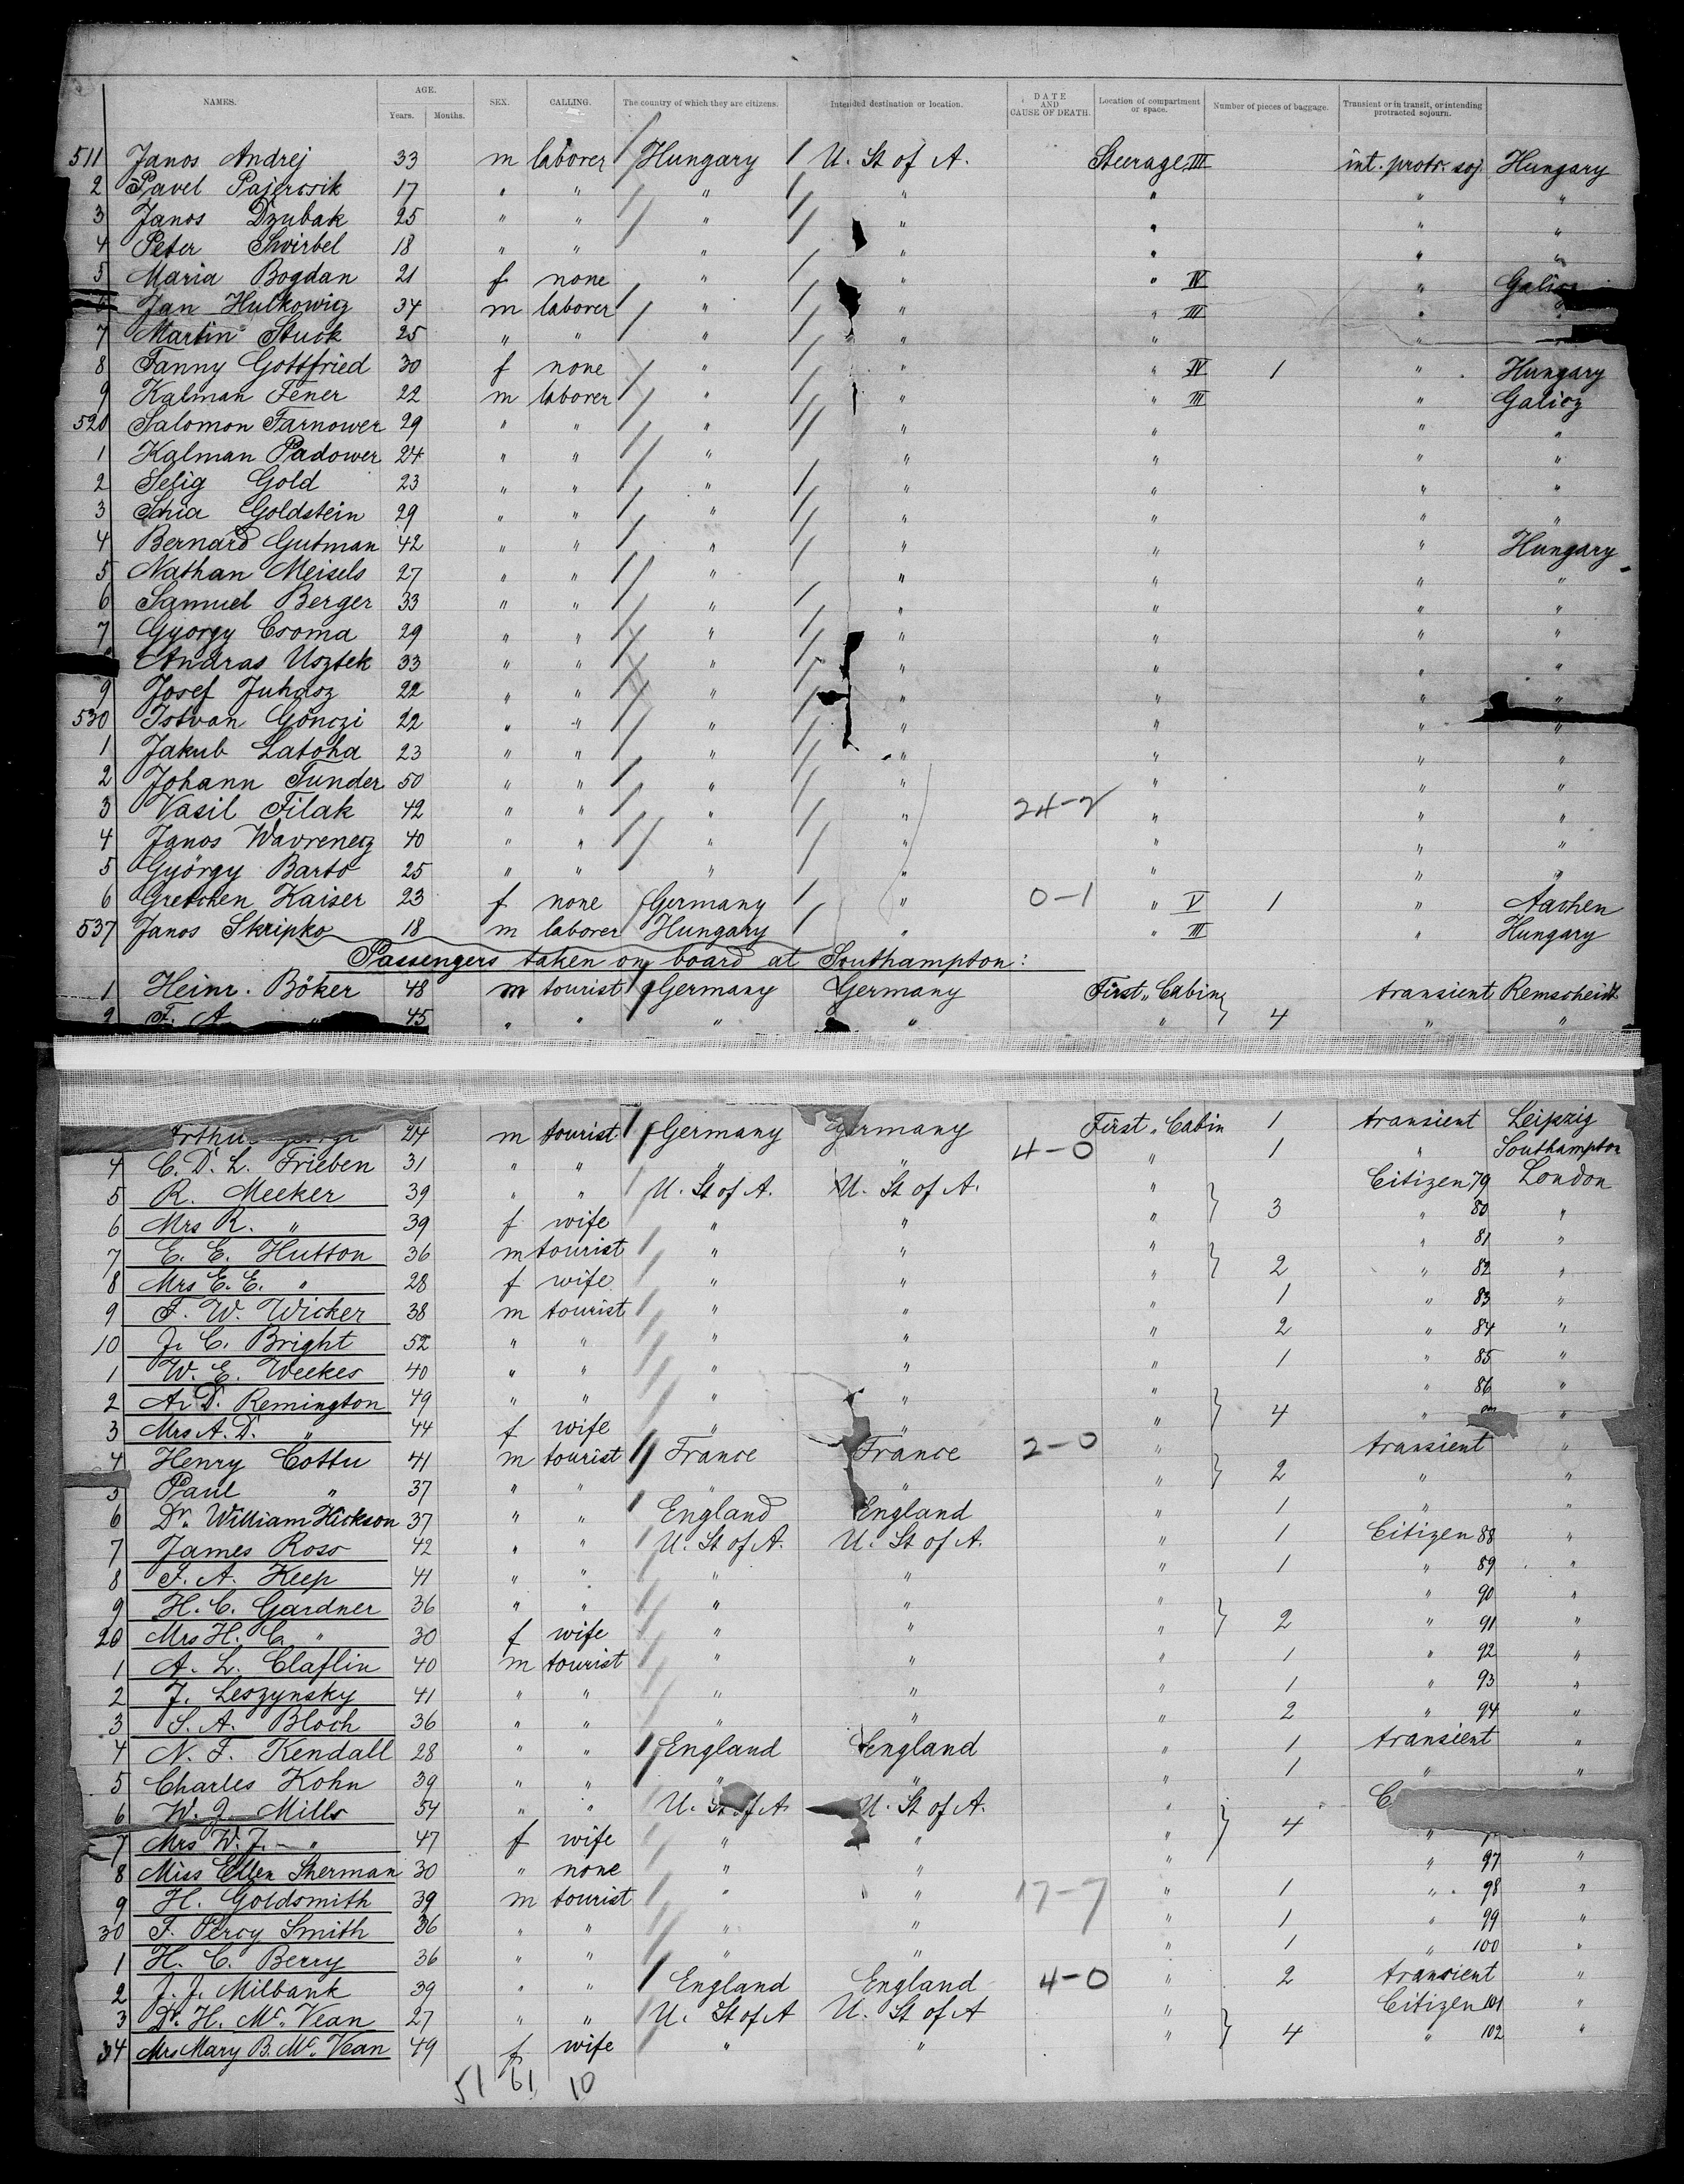 NAMES. AGE. Years. Months. SEX. CALLING. The country of which they are citizens. Intended destination or location. DATE AND CAUSE OF DEATH. Location of compartment or space. Number of pieces of baggage. Transient or in transit, or intending protracted sojourn.
511 Janos Andrej 33 m laborer Hungary U. St of A. Steerage III int. protr. soj. Hungary
2 Pavel Pajercsik 17 " " " " " " "
3 Janos Dzubak 25 " " " " " " "
4 Peter Swirbel 18 " " " " " " "
5 Maria Bogdan 21 f none " " " IV " Galicz
6 Jan Hulkowicz 34 m laborer " " " III "
7 Martin Stuck 25 " " " " " "
8 Fanny Gottfried 30 f none " " " IV 1 " Hungary
9 Kalman Fener 22 m laborer " " " III " Galicz
520 Salomon Tarnower 29 " " " " " " "
1 Kalman Padower 24 " " " " " " "
2 Selig Gold 23 " " " " " " "
3 Schia Goldstein 29 " " " " " " "
4 Bernard Gutman 42 " " " " " " Hungary
5 Nathan Meisels 27 " " " " " " "
6 Samuel Berger 33 " " " " " " "
7 Gyorgy Csoma 29 " " " " " " "
Andras Usztek 33 " " " " " " "
9 Josef Juhasz 22 " " " " " " "
530 Istvan Gönczi 22 " " " " " " "
1 Jakub Latoha 23 " " " " " " "
2 Johann Tunder 50 " " " " " " "
3 Vasil Filak 42 " " " " 24-2 " " "
4 Janos Wavrenecz 40 " " " " " " "
5 György Barto 25 " " " " " " "
6 Gretchen Kaiser 23 f none Germany " 0-1 " V 1 " Aachen
537 Janos Skripko 18 m laborer Hungary " " III " Hungary
Passengers taken on board at Southampton:
1 Heinr. Böker 48 m tourist Germany Germany First " Cabin transient Remscheidt
2 F. A. " 45 " " " " " 4 " "
24 m tourist Germany Germany First " Cabin 1 transient Leipzig
4 C. D. L. Frieben 31 " " " " 4-0 " 1 " Southampton
5 R. Meeker 39 " " U. St of A. U. St of A. " Citizen 79 London
6 Mrs R. " 39 f wife " " " 3 " 80 "
7 E. E. Hutton 36 m tourist " " " " 81 "
8 Mrs E. E. " 28 f wife " " " 2 " 82 "
9 F. W. Wicker 38 m tourist " " " 1 " 83 "
10 J. C. Bright 52 " " " " " 2 " 84 "
1 W. E. Weekes 40 " " " " " 1 " 85 "
2 A. D. Remington 49 " " " " " " 86 "
3 Mrs A. D. " 44 f wife " " " 4 " "
4 Henry Cottu 41 m tourist France France 2-0 " transient "
5 Paul " 37 " " " " " 2 " "
6 Dr. William Hickson 37 " " England England " 1 " "
7 James Ross 42 " " U. St of A. U. St of A. " 1 Citizen 88 "
8 F. A. Keep 41 " " " " " 1 " 89 "
9 H. C. Gardner 36 " " " " " " 90 "
20 Mrs H. C. " 30 f wife " " " 2 " 91 "
1 A. L. Claflin 40 m tourist " " " 1 " 92 "
2 J. Leszynsky 41 " " " " " 1 " 93 "
3 S. A. Bloch 36 " " " " " 2 " 94 "
4 N. F. Kendall 28 " " England England " 1 transient "
5 Charles Kohn 39 " " " " " 1 " "
6 W. J. Mills 54 " " U. St of A. U. St of A. " C
7 Mrs W. J. " 47 f wife " " " 4 "
8 Miss Ellen Sherman 30 " none " " " " 97 "
9 H. Goldsmith 39 m tourist " " 17-7 " 1 " 98 "
30 F. Percy Smith 36 " " " " " 1 " 99 "
1 H. C. Berry 36 " " " " " 1 " 100 "
2 J. J. Milbank 39 " " England England 4-0 " 2 transient "
3 Dr. H. Mc. Vean 27 " " U. St of A U. St of A " Citizen 101 "
34 Mrs Mary B. Mc. Vean 49 f wife " " " 4 " 102 "
51 61 10